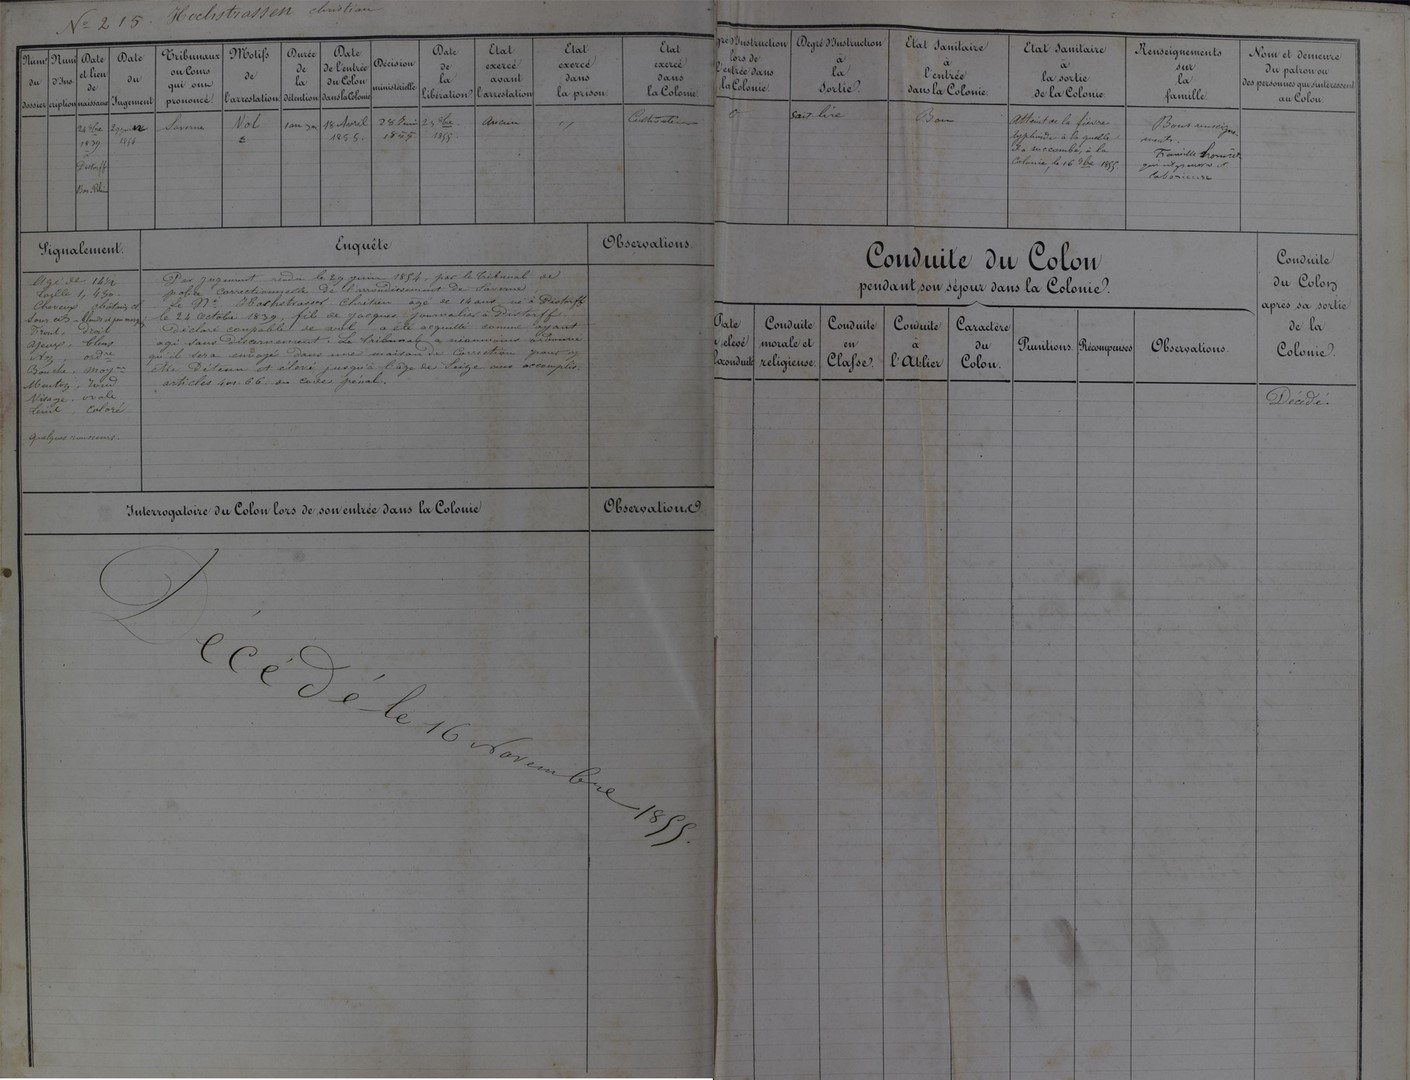 No 215. Hochstrassen Chrétien
Num du dossier
Num d'Inscription
Date et lieu de naissance
Date du Jugement
Tribunaux ou Cours qui ont prononcé
Motifs de l'arrestation
Durée de la détention
Date de l'entrée du Colon dans la Colonie
Décision ministérielle
Date de la Libération
Etat exercé avant l'arrestation
Etat exercé dans la prison.
Etat exercé dans la Colonie
gré d'Instruction lors de l'entrée dans la Colonie
Degré d'Instruction à la Sortie
Etat Sanitaire à l'entrée dans la Colonie
Etat Sanitaire à la sortie de la Colonie
Renseignements sur la famille
Nom et demeure du patron ou des personnes qui s'intéressent au Colon
24 8bre 1839 à
Bas Rhin
29 juin 1854
Saverne
Vol
18 Avril 1855.
1855
1855.
Aucun
"
Cultivateur
0
Sait lire
Bon
Atteint de la fièvre
typhoïde à la quelle
il a succombé, à la
Colonie, le 16 9bre 1855.
Bons renseigne-
ments.
Famille honnête
qui est pauvre et
laborieuse
Signalement.
Agé de 14 ans
Taille 1,430
Cheveux châtains
Front. droit
Yeux. bleus
Nez. ordre
Bouche. moyne
Menton. rond
Visage. ovale
Teint. coloré
quelques rousseurs.
Enquête
Par jugement rendu le 29 juin 1854. par le tribunal de
police Correctionnelle de l'arrondissement de Saverne;
le Né Hochstrasser Chrétien âgé de 14 ans, né à
le 24 Octobre 1839, fils de Jacques journalier à
Déclaré coupable de vol, a été acquitté comme ayant
agi sans discernement. Le tribunal a néanmoins ordonné
qu'il sera envoyé dans une maison de Correction pour y
être détenu et élevé jusqu'à l'âge de Seize ans accomplis.
articles 66 du code pénal.
Observations.
Interrogatoire du Colon lors de son entrée dans la Colonie
Observations
Décédé le 16 Novembre 1855.
Conduite du Colon
pendant son séjour dans la Colonie.
Conduite du Colon après sa sortie de la Colonie
Date
Conduite morale et religieuse
Conduite en Classe
Conduite à l'Atelier
Caractère du Colon.
Punitions.
Récompenses
Observations.
Décédé.